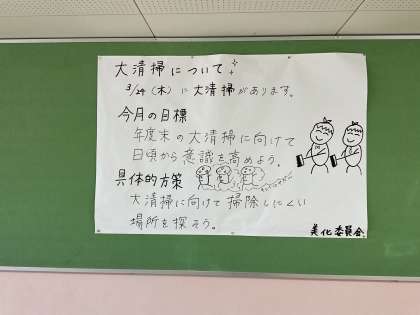 大清掃について
3/24（木）に大清掃があります。
今月の目標
年度末の大清掃に向けて
日頃から意識を高めよう。
具体的方策
大清掃に向けて掃除しにくい
場所を探そう。
美化委員会